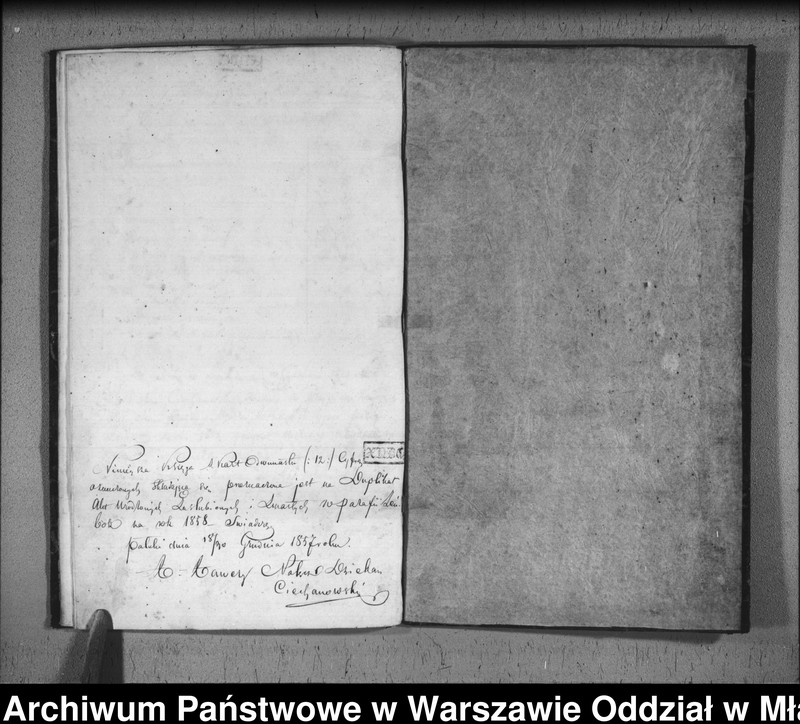 Niniejsza Księga z Kart Dwunastu (: 12 :) Cyfrą
oznaczonych składająca się przeznaczona jest na Duplikat
Akt Urodzonych Zaślubionych i Zmarłych w parafii
na rok 1858 Świadczę
dnia 18/30 Grudnia 1857 roku.
X. Xawery Dziekan
Ciechanowski
Archiwum Państwowe w Warszawie Oddział w Mł